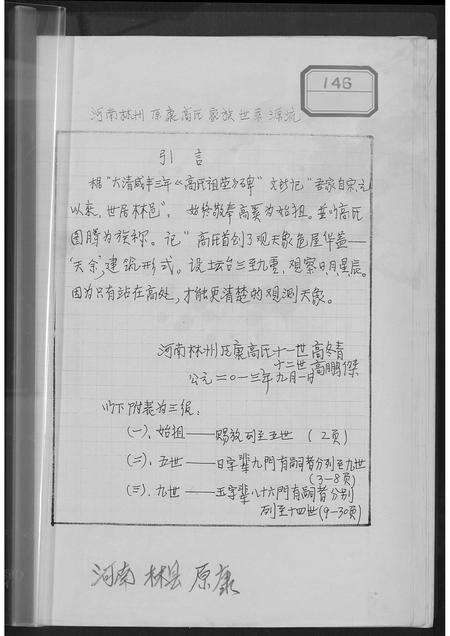 146
河南林州原康高氏家族世系源流
引言
根"大清咸丰三年《高氏祖茔》碑"文抄记"吾家自宋元
以来,世居林邑",始终敬奉高奚为始祖。并以高氏
图腾为族称。记"高氏首创了观天象危屋华盖—
'天余'建筑形式。设坛台三至九重,观察日月星辰。
因为只有站在高处,才能更清楚的观测天象。
河南林州原康高氏十一世高冬青
十二世高鹏傑
公元二〇一三年九月一日
以下附装为三级:
(一)、始祖——赐放列至五世 (2页)
(二)、五世——日字辈九門有嗣者分列至九世
(3-8页)
(三)、九世——玉字辈八十六門有嗣者分别
列至十四世(9-30页)
河南林县原康